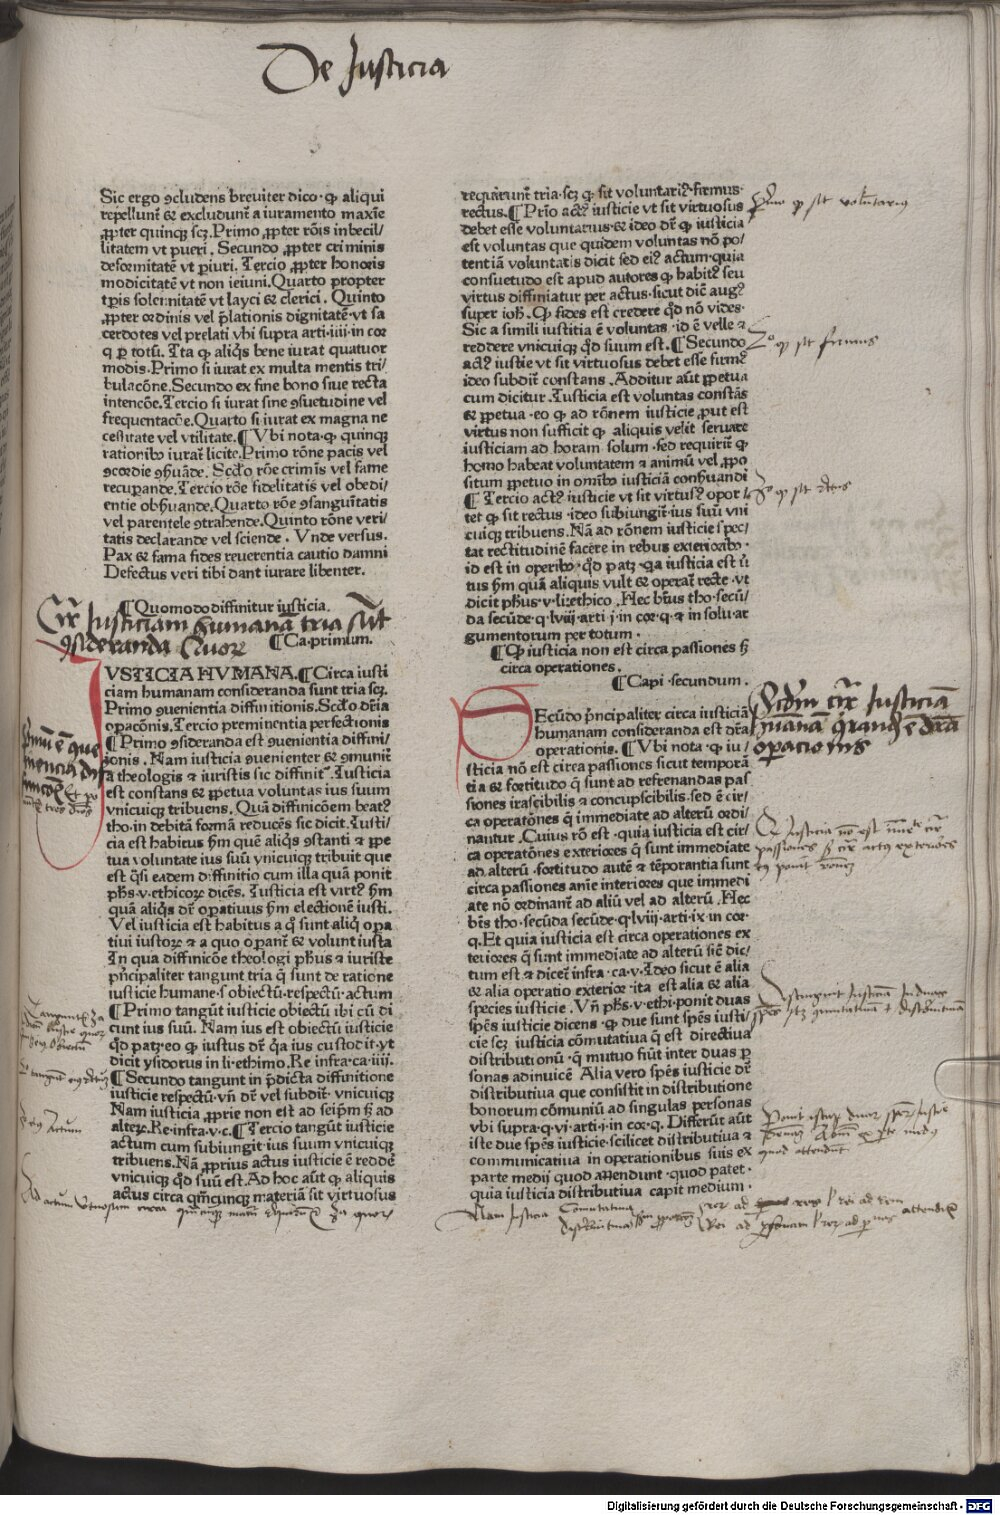 De Iusticia
Sic ergo ꝯcludens breuiter dico· ꝙ aliqui
repellunt᷑ & excludunt᷑ a iuramento maxīe
ꝓpter quinqꝫ scꝫ. Primo ꝓpter rōis inbecil/
litatem vt pueri . Secundo ꝓpter criminis
deformitatē vt ꝑiuri. Tercio ꝓpter honoris
modicitatē vt non ieiuni. Quarto propter
tꝑis solennitatē vt layci & clerici . Quinto
ꝓpter ordinis vel p̄lationis dignitatē· vt sa
cerdotes vel prelati vbi supra arti·iiii·in cor
q ꝑ totū. Ita ꝙ aliq̄s bene iurat quatuor
modis. Primo si iurat ex multa mentis tri/
bulacōne. Secundo ex fine bono siue recta
intencōe. Tercio si iurat sine ꝯsuetudine vel
frequentacōe. Quarto si iurat ex magna ne
cessitate vel vtilitate. ¶ Vbi nota· ꝙ quinqꝫ
rationibꝰ iurat᷑ licite. Primo rōne pacis vel
ꝯcordie ꝯẜuāde. Scd̄o rōe crimīs vel fame
recuꝑande. Tercio rōe fidelitatis vel obedi/
entie obẜuande. Quarto rōe ꝯsanguītatis
vel parentele ꝯtrahende. Quinto rōne veri/
tatis declarande vel sciende . Vnde versus.
Pax & fama fides reuerentia cautio damni
Defectus veri tibi dant iurare libenter.
¶ Quomodo diffinitur iusticia.
Circa Iusticiam humanā tria sūt
ꝯsideranda Quorꝫ
¶ Ca·primum.
IVSTICIA HVMANA. ¶ Circa iusti
ciam humanam consideranda sunt tria scꝫ.
Primo ꝯuenientia diffinitionis. Scd̄o dr̄ia
oꝑacōnis. Tercio preminentia perfectionis
¶ Primo ꝯsideranda est ꝯuenientia diffini/
tionis . Nam iusticia ꝯuenienter & ꝯmunit᷑
a theologis & iuristis sic diffinit᷑. Iusticia
est constans & ꝑpetua voluntas ius suum
vnicuiqꝫ tribuens. Quā diffinicōem beatꝰ
tho·in debitā formā reducēs sic dicit. Iusti/
cia est habitus ẜm quē aliq̄s ꝯstanti & ꝑpe
tua voluntate ius suū vnicuiqꝫ tribuit que
est q̄si eadem diffinitio cum illa quā ponit
ph̄s·v·ethicorꝫ dicēs. Iusticia est virtꝰ ẜm
quā aliq̄s dr̄ oꝑatiuus ẜm electionē iusti.
Vel iusticia est habitus a q̄ sunt aliq̄ oꝑa
tiui iustorꝫ & a quo oꝑant᷑ & volunt iusta
In qua diffinicōe theologi ph̄us & iuriste
pͥncipaliter tangunt tria q̄ sunt de ratione
iusticie humane·s·obiectū·respectū·actum
¶ Primo tangūt iusticie obiectū ibi cū di
cunt ius suū. Nam ius est obiectū iusticie
qd̄ patꝫ·eo ꝙ iustus dr̄ q̄a ius custodit·vt
dicit ysidorus in li·ethimo. Re infra·ca·iiii.
¶ Secundo tangunt in p̄dicta diffinitione
iusticie respectū·vn̄ dr̄ vel subdit᷑· vnicuiqꝫ
Nam iusticia ꝓprie non est ad seipm̄ ẜꝫ ad
alterꝫ. Re·infra·v·c. ¶ Tercio tangūt iusticie
actum cum subiungit·ius suum vnicuiqꝫ
tribuens. Nā ꝓprius actus iusticie ē reddē
vnicuiqꝫ qd̄ suū est. Ad hoc aūt ꝙ aliquis
actus circa qm̄cunqꝫ materiā sit virtuosus
requirunt᷑ tria·scꝫ ꝙ sit voluntariꝰ·firmus·
rectus. ¶ Prīo actꝰ iusticie vt sit virtuosus
debet esse voluntarius·& ideo dr̄ ꝙ iusticia
est voluntas que quidem voluntas nō po/
tentiā voluntatis dicit sed eiꝰ actum·quia
consuetudo est apud autores ꝙ habitꝰ seu
virtus diffiniatur per actus·sicut dic̄ augꝰ
super ioh̄. Qꝫ fides est credere qd̄ nō vides·
Sic a simili iustitia ē voluntas ·id ē velle &
reddere vnicuiqꝫ qd̄ suum est. ¶ Secundo
actꝰ iustie vt sit virtuosus debet esse firmꝰ
ideo subdit᷑ constans . Additur aūt ꝑpetua
cum dicitur. Iusticia est voluntas constās
& ꝑpetua ·eo ꝙ ad rōnem iusticie ꝓut est
virtus non sufficit ꝙ aliquis velit seruare
iusticiam ad horam solum ·sed requirit᷑ ꝙ
homo habeat voluntatem & animū vel ꝓpo
situm ꝑpetuo in omībꝰ iusticiā conẜuandi
¶ Tercio actꝰ iusticie vt sit virtusꝰ opor
tet ꝙ sit rectus ·ideo subiungit᷑·ius suū vni
cuiqꝫ tribuens. Nā ad rōnem iusticie spec/
tat rectitudinē facere in rebus exterioribꝰ·
id est in operibꝰ· qd̄ patꝫ ·q̄a iusticia est v̄
tus ẜm quā aliquis vult & operat᷑ recte ·vt
dicit ph̄us·v·li·ethico . Hec btūs tho·secū/
da secūde·q·lviij·arti·j·in cor·q·& in solu·ar
gumentorum per totum .
¶ Qꝫ iusticia non est circa passiones ẜꝫ
circa operationes.
¶ Capi·secundum.
SEcūdo pͥncipaliter circa iusticiā
humanam consideranda est dr̄ia
operationis. ¶ Vbi nota ·ꝙ iu/
sticia nō est circa passiones sicut temporā
tia & fortitudo q̄ sunt ad refrenandas pas
siones irascibilis & concupscibilis·sed ē cir/
ca operatōnes q̄ immediate ad alterū ordi
nantur . Cuius rō est ·quia iusticia est cir/
ca operatōnes exteriores q̄ sunt immediate
ad alterū ·fortitudo autē & tēporantia sunt
circa passiones anīe interiores que immedi
ate nō ordinant᷑ ad aliū vel ad alterū . Hec
bt̄s tho·secūda secūde·q·lviij·arti·ix·in cor·
q. Et quia iusticia est circa operationes ex
teriores q̄ sunt immediate ad alterū sic̄ dic/
tum est & dicet᷑ infra·ca·v· Ideo sicut ē alia
& alia operatio exterior ·ita est alia & alia
species iusticie . Vn̄ ph̄s·v·ethi·ponit duas
spēs iusticie dicens ·ꝙ due sunt spēs iusti/
cie scꝫ iusticia cōmutatiua q̄ est directiua
distributionū· q̄ mutuo fiūt inter duas ꝑ
sonas adinuicē Alia vero spēs iusticie dr̄
distributiua que consistit in distributione
bonorum cōmuniū ad singulas personas
vbi supra·q·vi·arti·j·in cor·q. Differūt aūt
iste due spēs iusticie·scilicet distributiua &
communicatiua in operationibus suis ex
parte medij quod attendunt ·quod patet ·
quia iusticia distributiua capit medium ·
Primo ꝙ sit voluntarius
2º ꝙ sit firmus
3º ꝙ sit rectus
Scd̄m circa Iusticiā
humanā ꝯsiderandū ē dr̄ia
operacionis